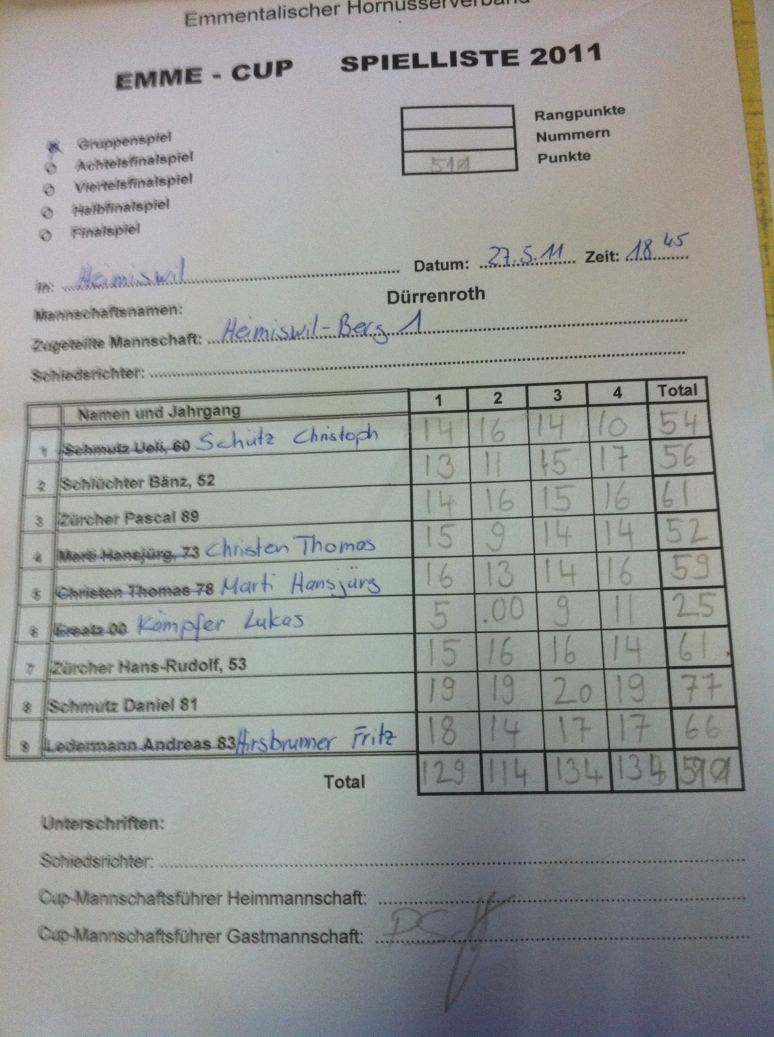 Emmentalischer Hornusserverband
EMME - CUP SPIELLISTE 2011
Gruppenspiel
Achtelsfinalspiel
Viertelsfinalspiel
Halbfinalspiel
Finalspiel
Rangpunkte
Nummern
Punkte
in: Heimiswil Datum: 27.5.11 Zeit: 18 45
Mannschaftsnamen: Dürrenroth
Zugeteilte Mannschaft: Heimiswil-Berg 1
Schiedsrichter:
Namen und Jahrgang 1 2 3 4 Total
1 Schmutz Ueli, 60 Schütz Christoph 14 16 14 10 54
2 Schlüchter Bänz, 52 13 11 15 17 56
3 Zürcher Pascal 89 14 16 15 16 61
4 Marti Hansjürg, 73 Christen Thomas 15 9 14 14 52
5 Christen Thomas 78 Marti Hansjürg 16 13 14 16 59
6 Ersatz 00 Kämpfer Lukas 5 .00 9 11 25
7 Zürcher Hans-Rudolf, 53 15 16 16 14 61.
8 Schmutz Daniel 81 19 19 20 19 77
9 Ledermann Andreas 83 Hirsbrunner Fritz 18 14 17 17 66
Total 129 114 134
Unterschriften:
Schiedsrichter:
Cup-Mannschaftsführer Heimmannschaft:
Cup-Mannschaftsführer Gastmannschaft: